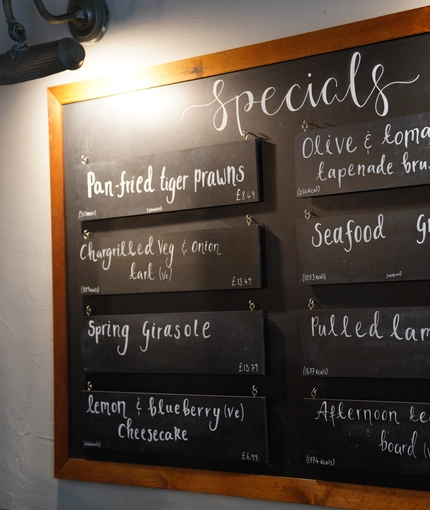 Specials
Pan-fried tiger prawns
£8.49
Chargrilled Veg & onion
tart (ve)
£13.49
Spring Girasole
£13.79
lemon & blueberry (ve)
Cheesecake
£6.99
Olive & toma
tapenade bru
Seafood
(1053 kcals)
Pulled lam
(1677 kcals)
Afternoon te
board (v
(1774 kcals)